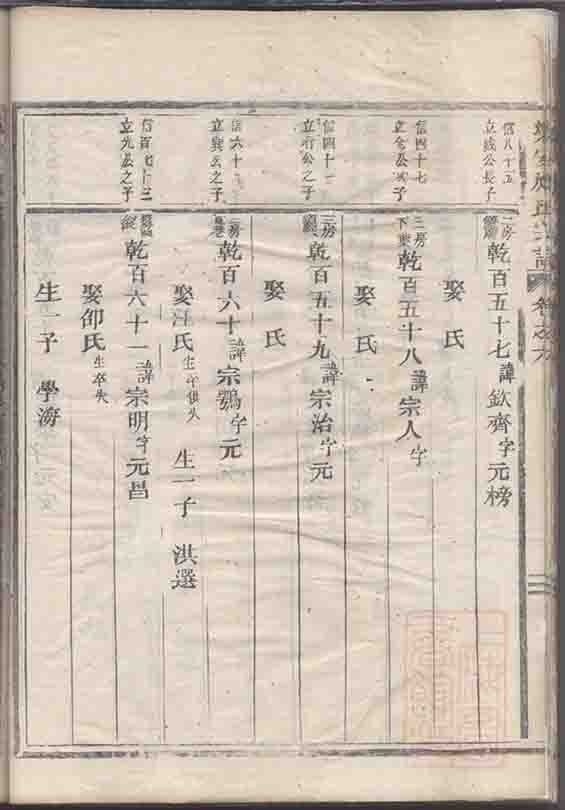 信八十五
立成公長子
二房
乾百五十七諱欽齊字元榜
娶氏
信四十七
立公次子
三房
下
乾百五十八諱宗人字
娶氏
信四十一
立行公之子
三房
乾百五十九諱宗治字元
娶氏
信六十
立與公之子
二房
乾百六十諱宗鸚字元
娶汪氏生卒俱失 生一子 洪選
信百七十三
立先公之子
乾百六十一諱宗明字元昌
娶邵氏生卒失
生一子 學海
氏宗譜
卷之六